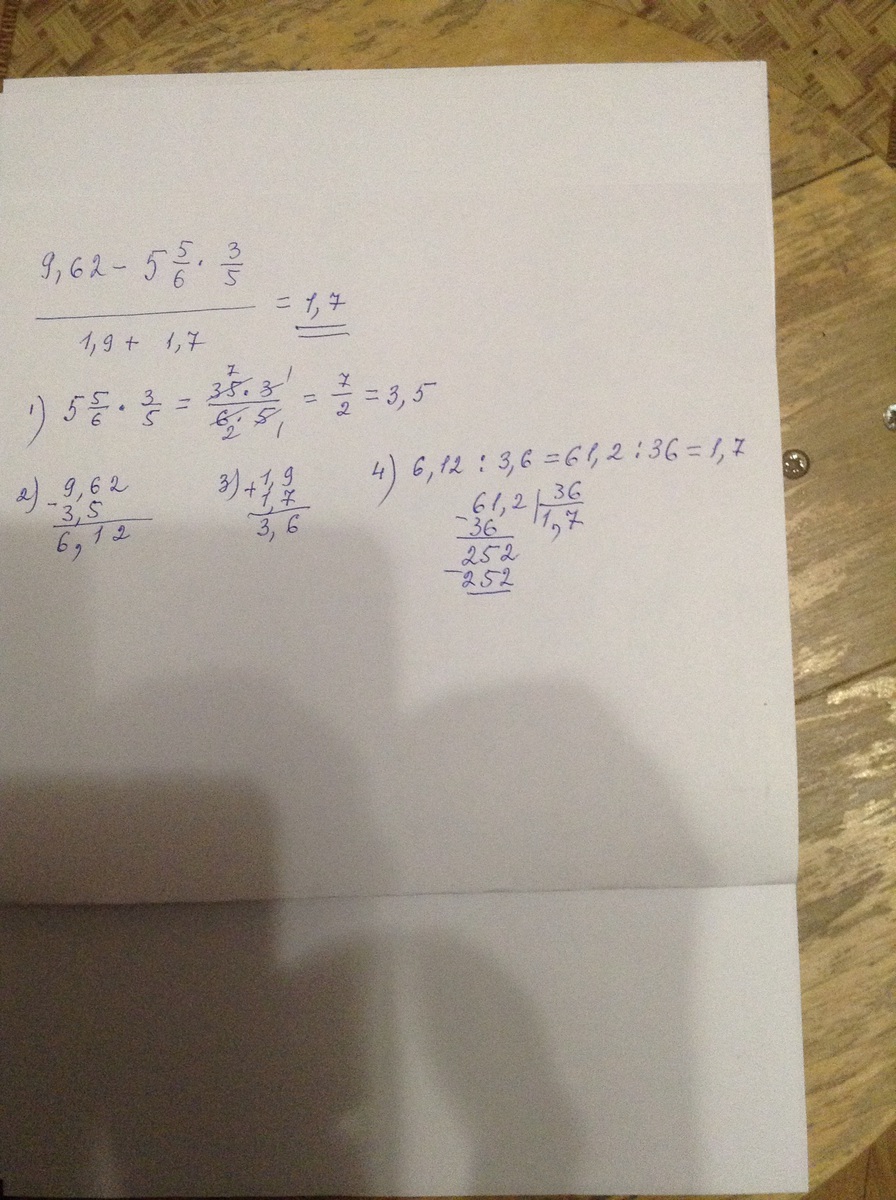 9,62 - 5 5/6 · 3/5
= 1,7
1,9 + 1,7
1) 5 5/6 · 3/5 = 35·3/6·5 = 7/2 = 3,5
7 1
2 1
2) 9,62
- 3,5
6,12
3) + 1,9
1,7
3,6
4) 6,12 : 3,6 = 61,2 : 36 = 1,7
- 61,2 | 36
36 1,7
252
- 252